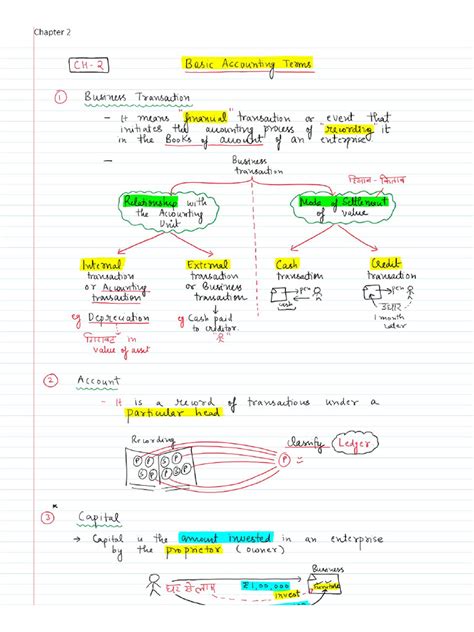 Chapter 2
CH-2
Basic Accounting Terms
① Business Transaction
- It means "financial" transaction or event that
initiates the accounting process of "recording" it
in the Books of account of an enterprise.
- Business
transaction
हिसाब-किताब
Relationship with
the Accounting
Unit
Mode of Settlement
of value
Internal
transaction
or Accounting
transaction
External
transaction
or Business
transaction
Cash
transaction
Credit
transaction
pen
cash
pen
उधार
1 month
later
eg Depreciation
गिरावट in
value of asset
eg Cash paid
to creditor.
② Account
- It is a record of transactions under a
particular head
Recording
classify
Ledger
P P S P
S P S P
P
③ Capital
→ Capital is the amount invested in an enterprise
by the proprietor (owner)
Business
घर से लाया
₹1,00,000
invest
furniture